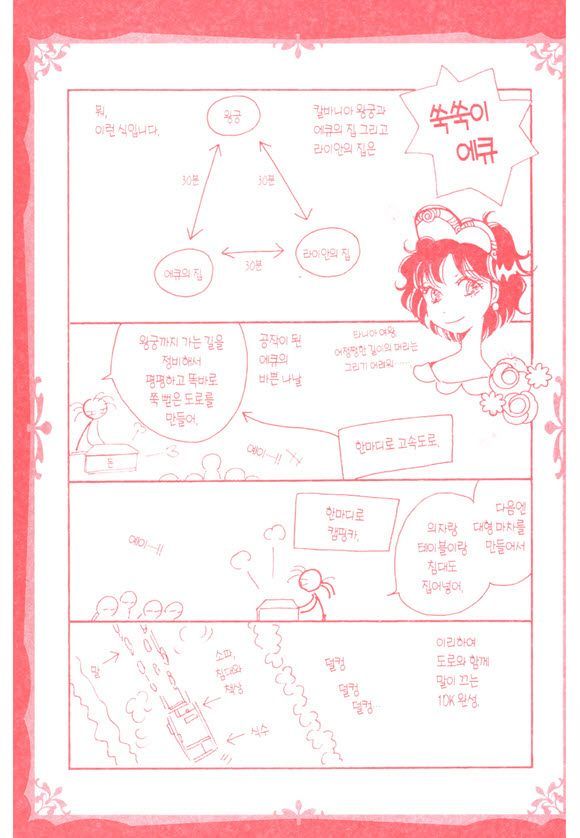 쑥쑥이
에큐
칼바니아 왕궁과
에큐의 집 그리고
라이안의 집은
뭐,
이런 식입니다.
왕궁
30분
30분
에큐의 집
30분
라이안의 집
타니아 여왕
어정쩡한 길이의 머리는
그리기 어려워……
공작이 된
에큐의
바쁜 나날
왕궁까지 가는 길을
정비해서
평평하고 똑바로
쭉 뻗은 도로를
만들어.
돈
예이—!!
한마디로 고속도로.
다음엔
대형 마차를
만들어서
의자랑
테이블이랑
침대도
집어넣어.
한마디로
캠핑카.
예이—!!
이리하여
도로와 함께
말이 끄는
1DK 완성.
덜컹
덜컹
덜컹…
소파,
침대와
책상
말
식수